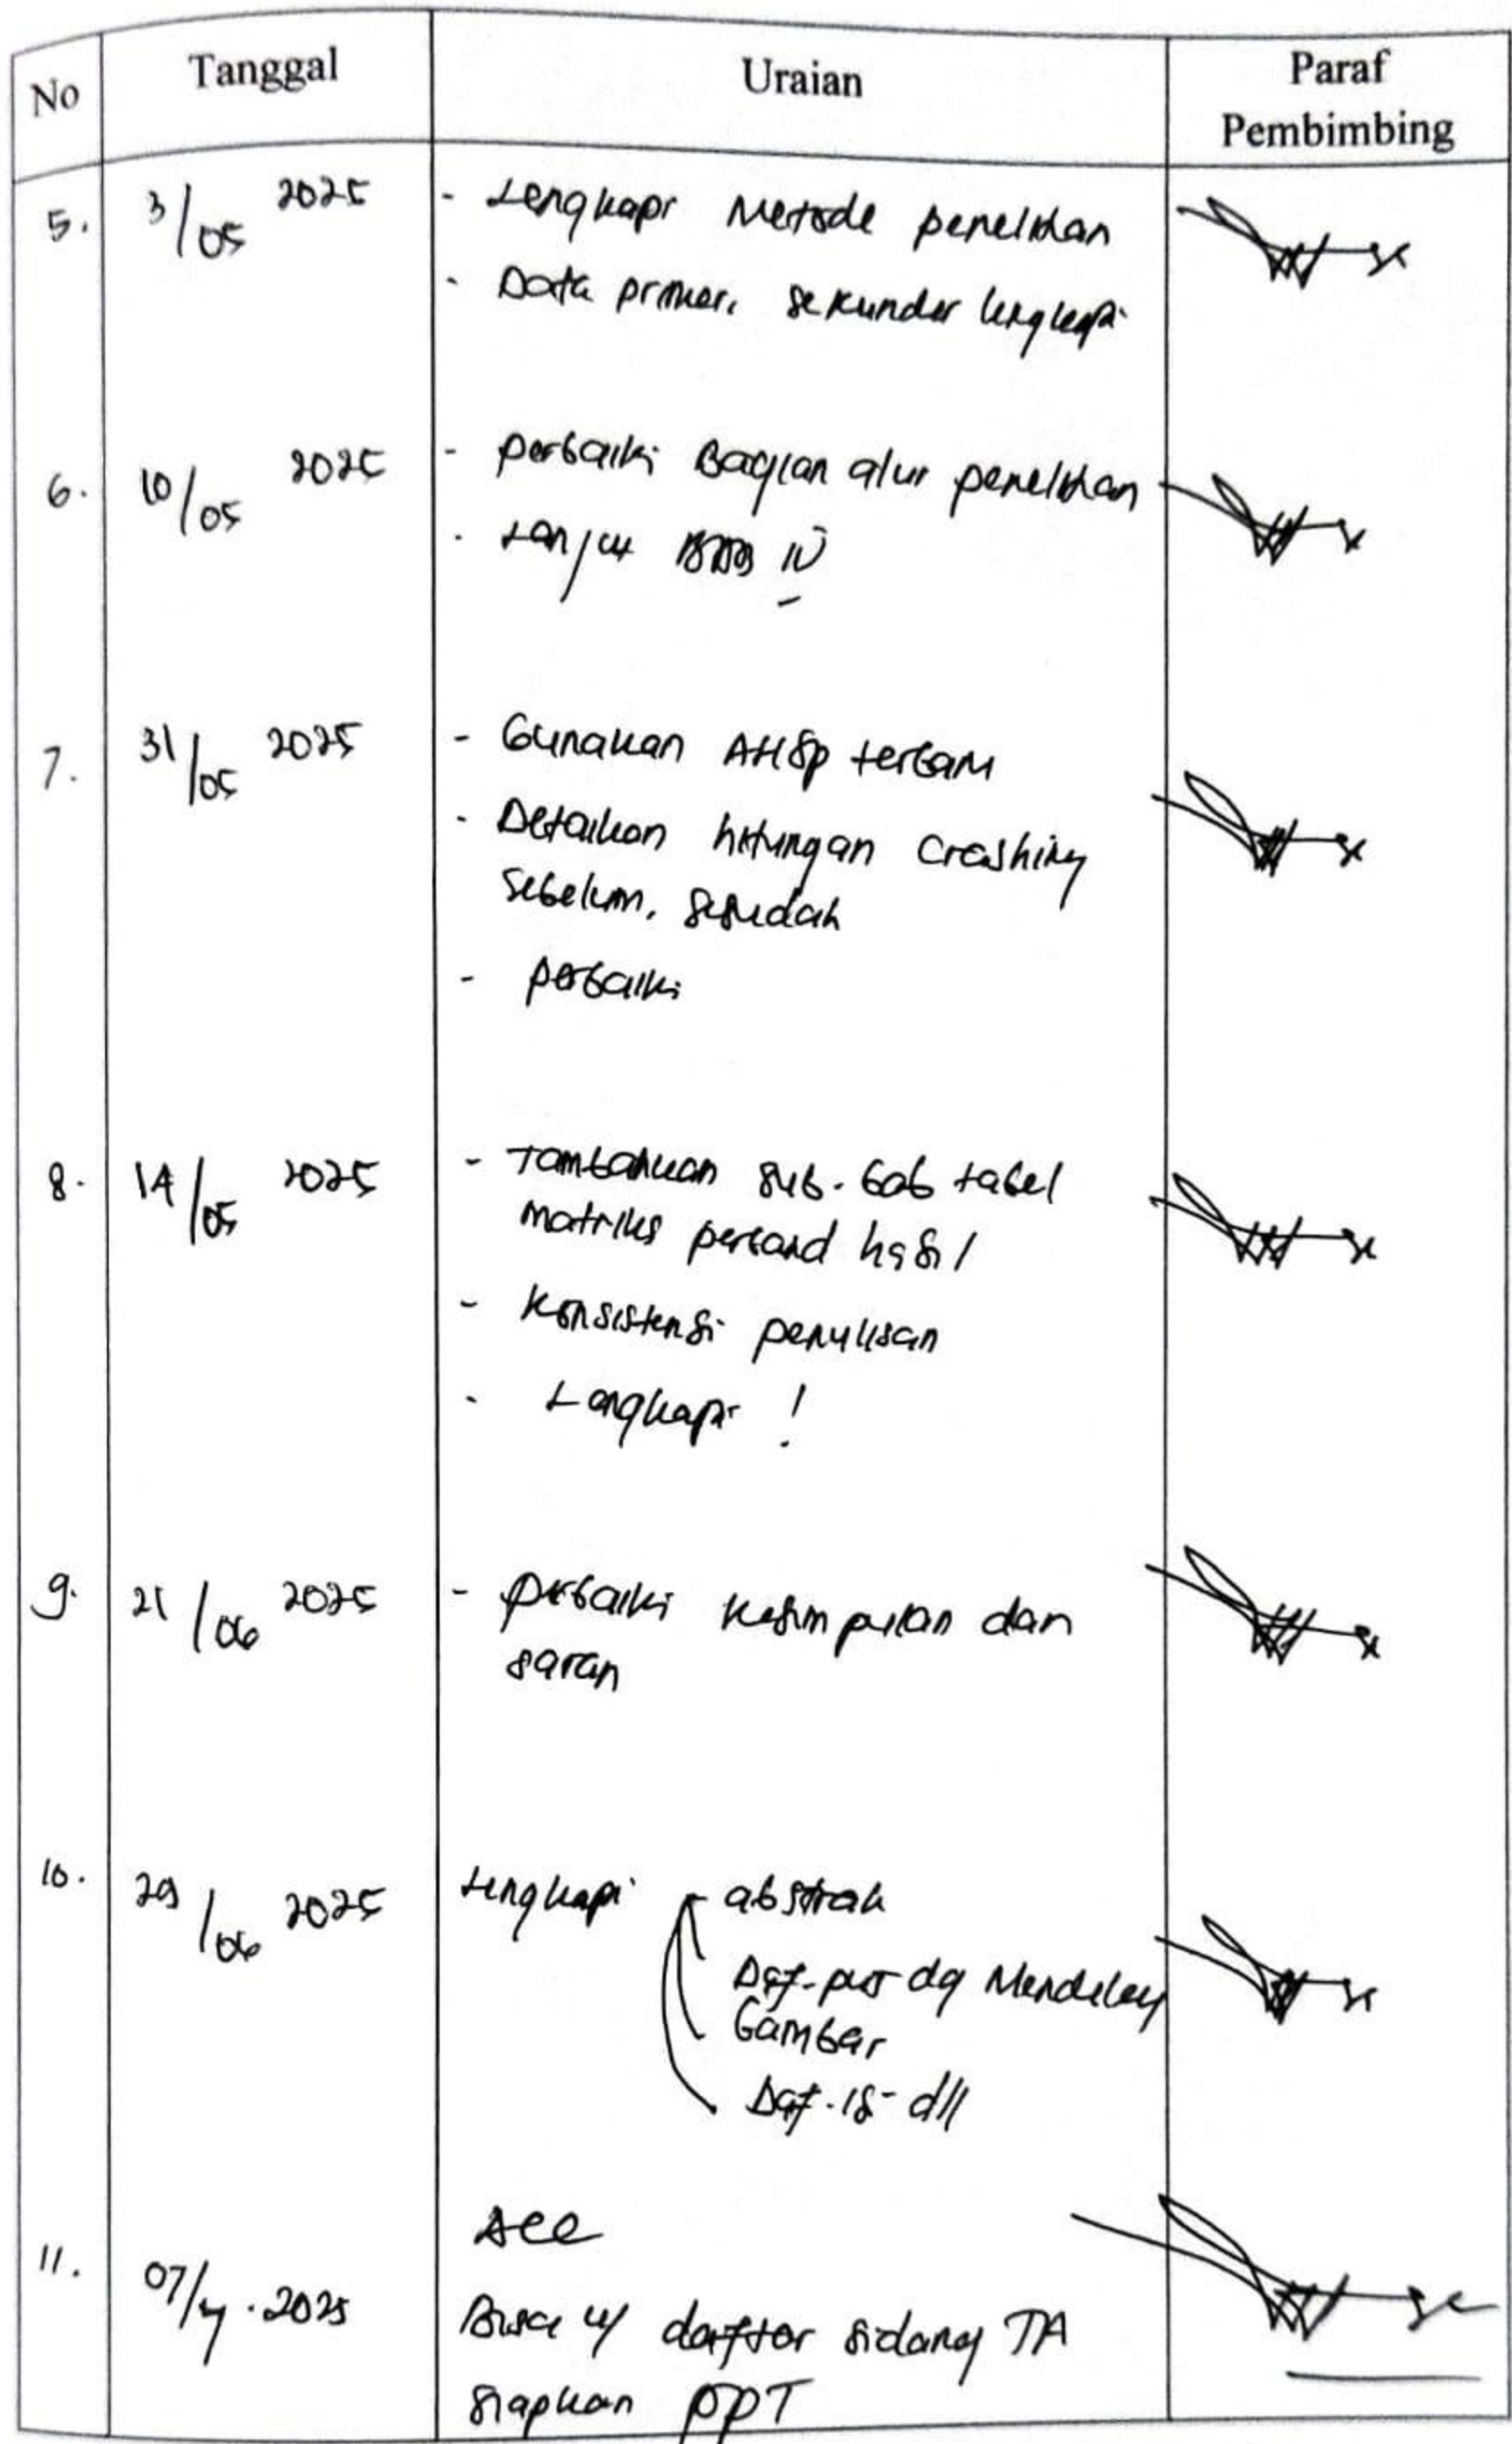 No Tanggal Uraian Paraf Pembimbing
5. 3/05 2025 - Lengkapi Metode penelitian
- Data primer, sekunder lengkapi
6. 10/05 2025 - perbaiki Bagian alur penelitian
- Lanjut BAB IV
7. 31/05 2025 - Gunakan AHSP terbaru
- Detailkan hitungan Crashing
sebelum, sesudah
- perbaiki
8. 14/05 2025 - Tambahkan sub-bab tabel
matriks perband hasil
- Konsistensi penulisan
- Lengkapi !
9. 21/06 2025 - perbaiki kesimpulan dan
saran
10. 29/06 2025 Lengkapi - abstrak
Daf-pus dg Mendeley
Gambar
Daf-isi dll
11. 07/7.2025 Acc
Bisa u/ daftar sidang TA
siapkan PPT